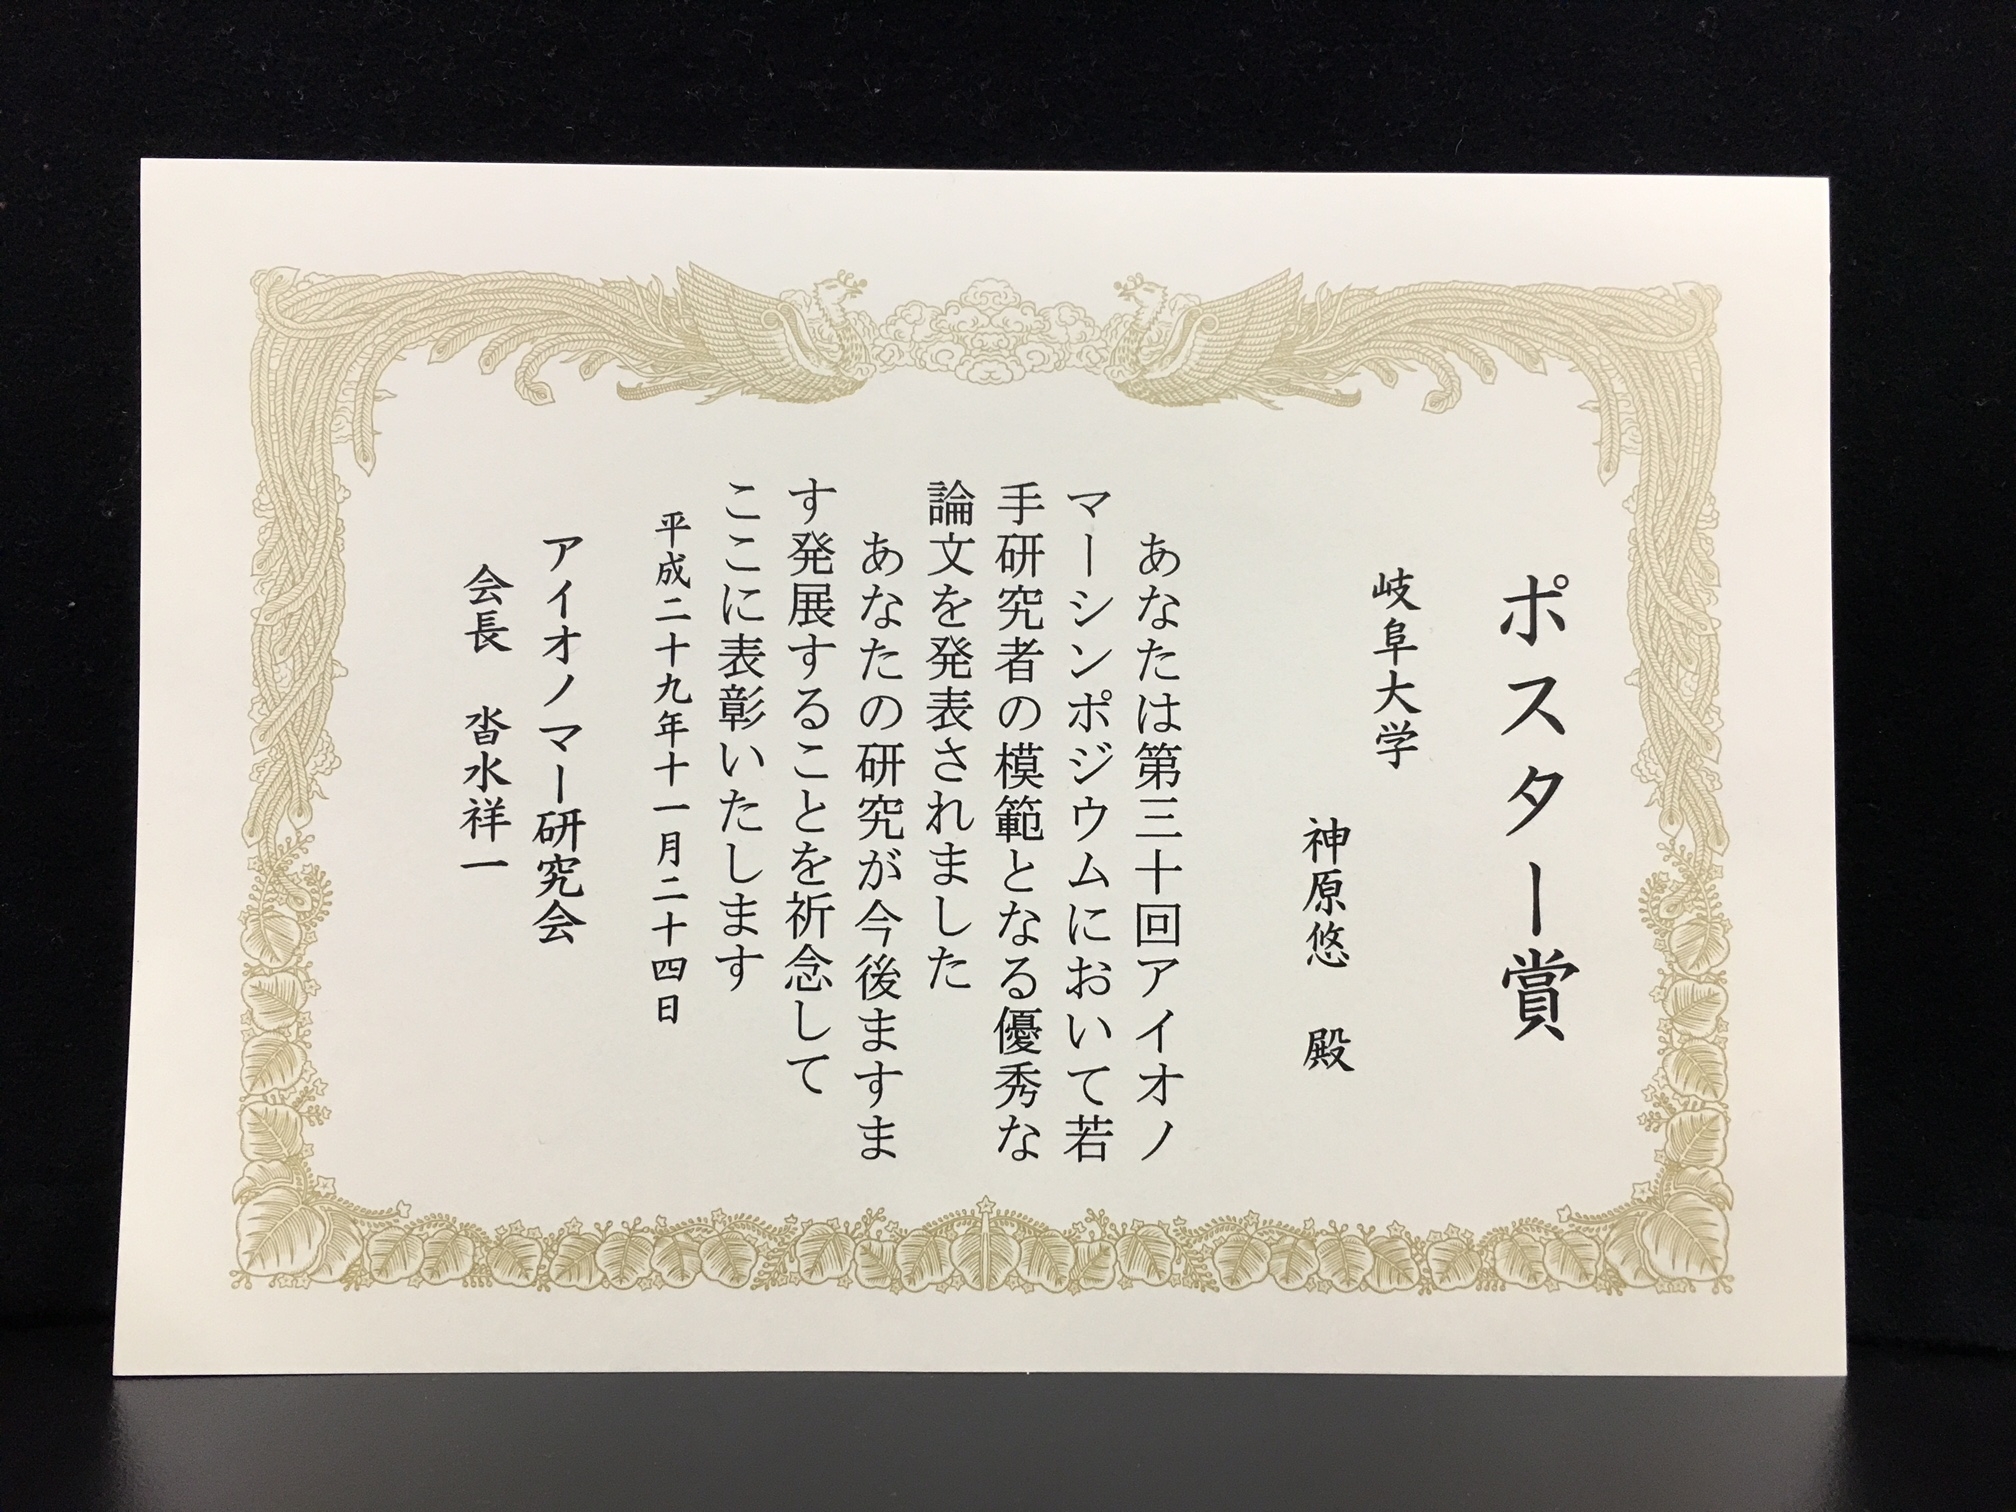 ポスター賞
岐阜大学
神原悠　殿
あなたは第三十回アイオノ
マーシンポジウムにおいて若
手研究者の模範となる優秀な
論文を発表されました
あなたの研究が今後ますま
す発展することを祈念して
ここに表彰いたします
平成二十九年十一月二十四日
アイオノマー研究会
会長　沓水祥一